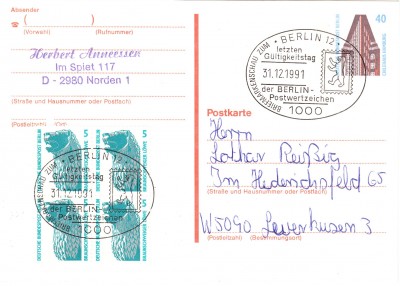 Abs. ( )
(Vorwahl) (Rufnummer)
Herbert Annerssen
Im Spiet 117
D - 2980 Norden 1
(Straße und Hausnummer oder Postfach)
(Postleitzahl) (Ort)
40
· BERLIN 12 ·
BRIEFMARKENSCHAU ZUM
letzten
Gültigkeitstag
31.12.1991
der BERLIN-
Postwertzeichen
1000
Postkarte
Herrn
Lothar Reißig
Im Hederichsfeld 65
(Straße und Hausnummer oder Postfach)
W5090 Leverkusen 3
(Postleitzahl) (Bestimmungsort)
5 5
DEUTSCHE BUNDESPOST BERLIN
BRAUNSCHWEIGER LÖWE
· BERLIN 12 ·
BRIEFMARKENSCHAU ZUM
letzten
Gültigkeitstag
31.12.1991
der BERLIN-
Postwertzeichen
1000